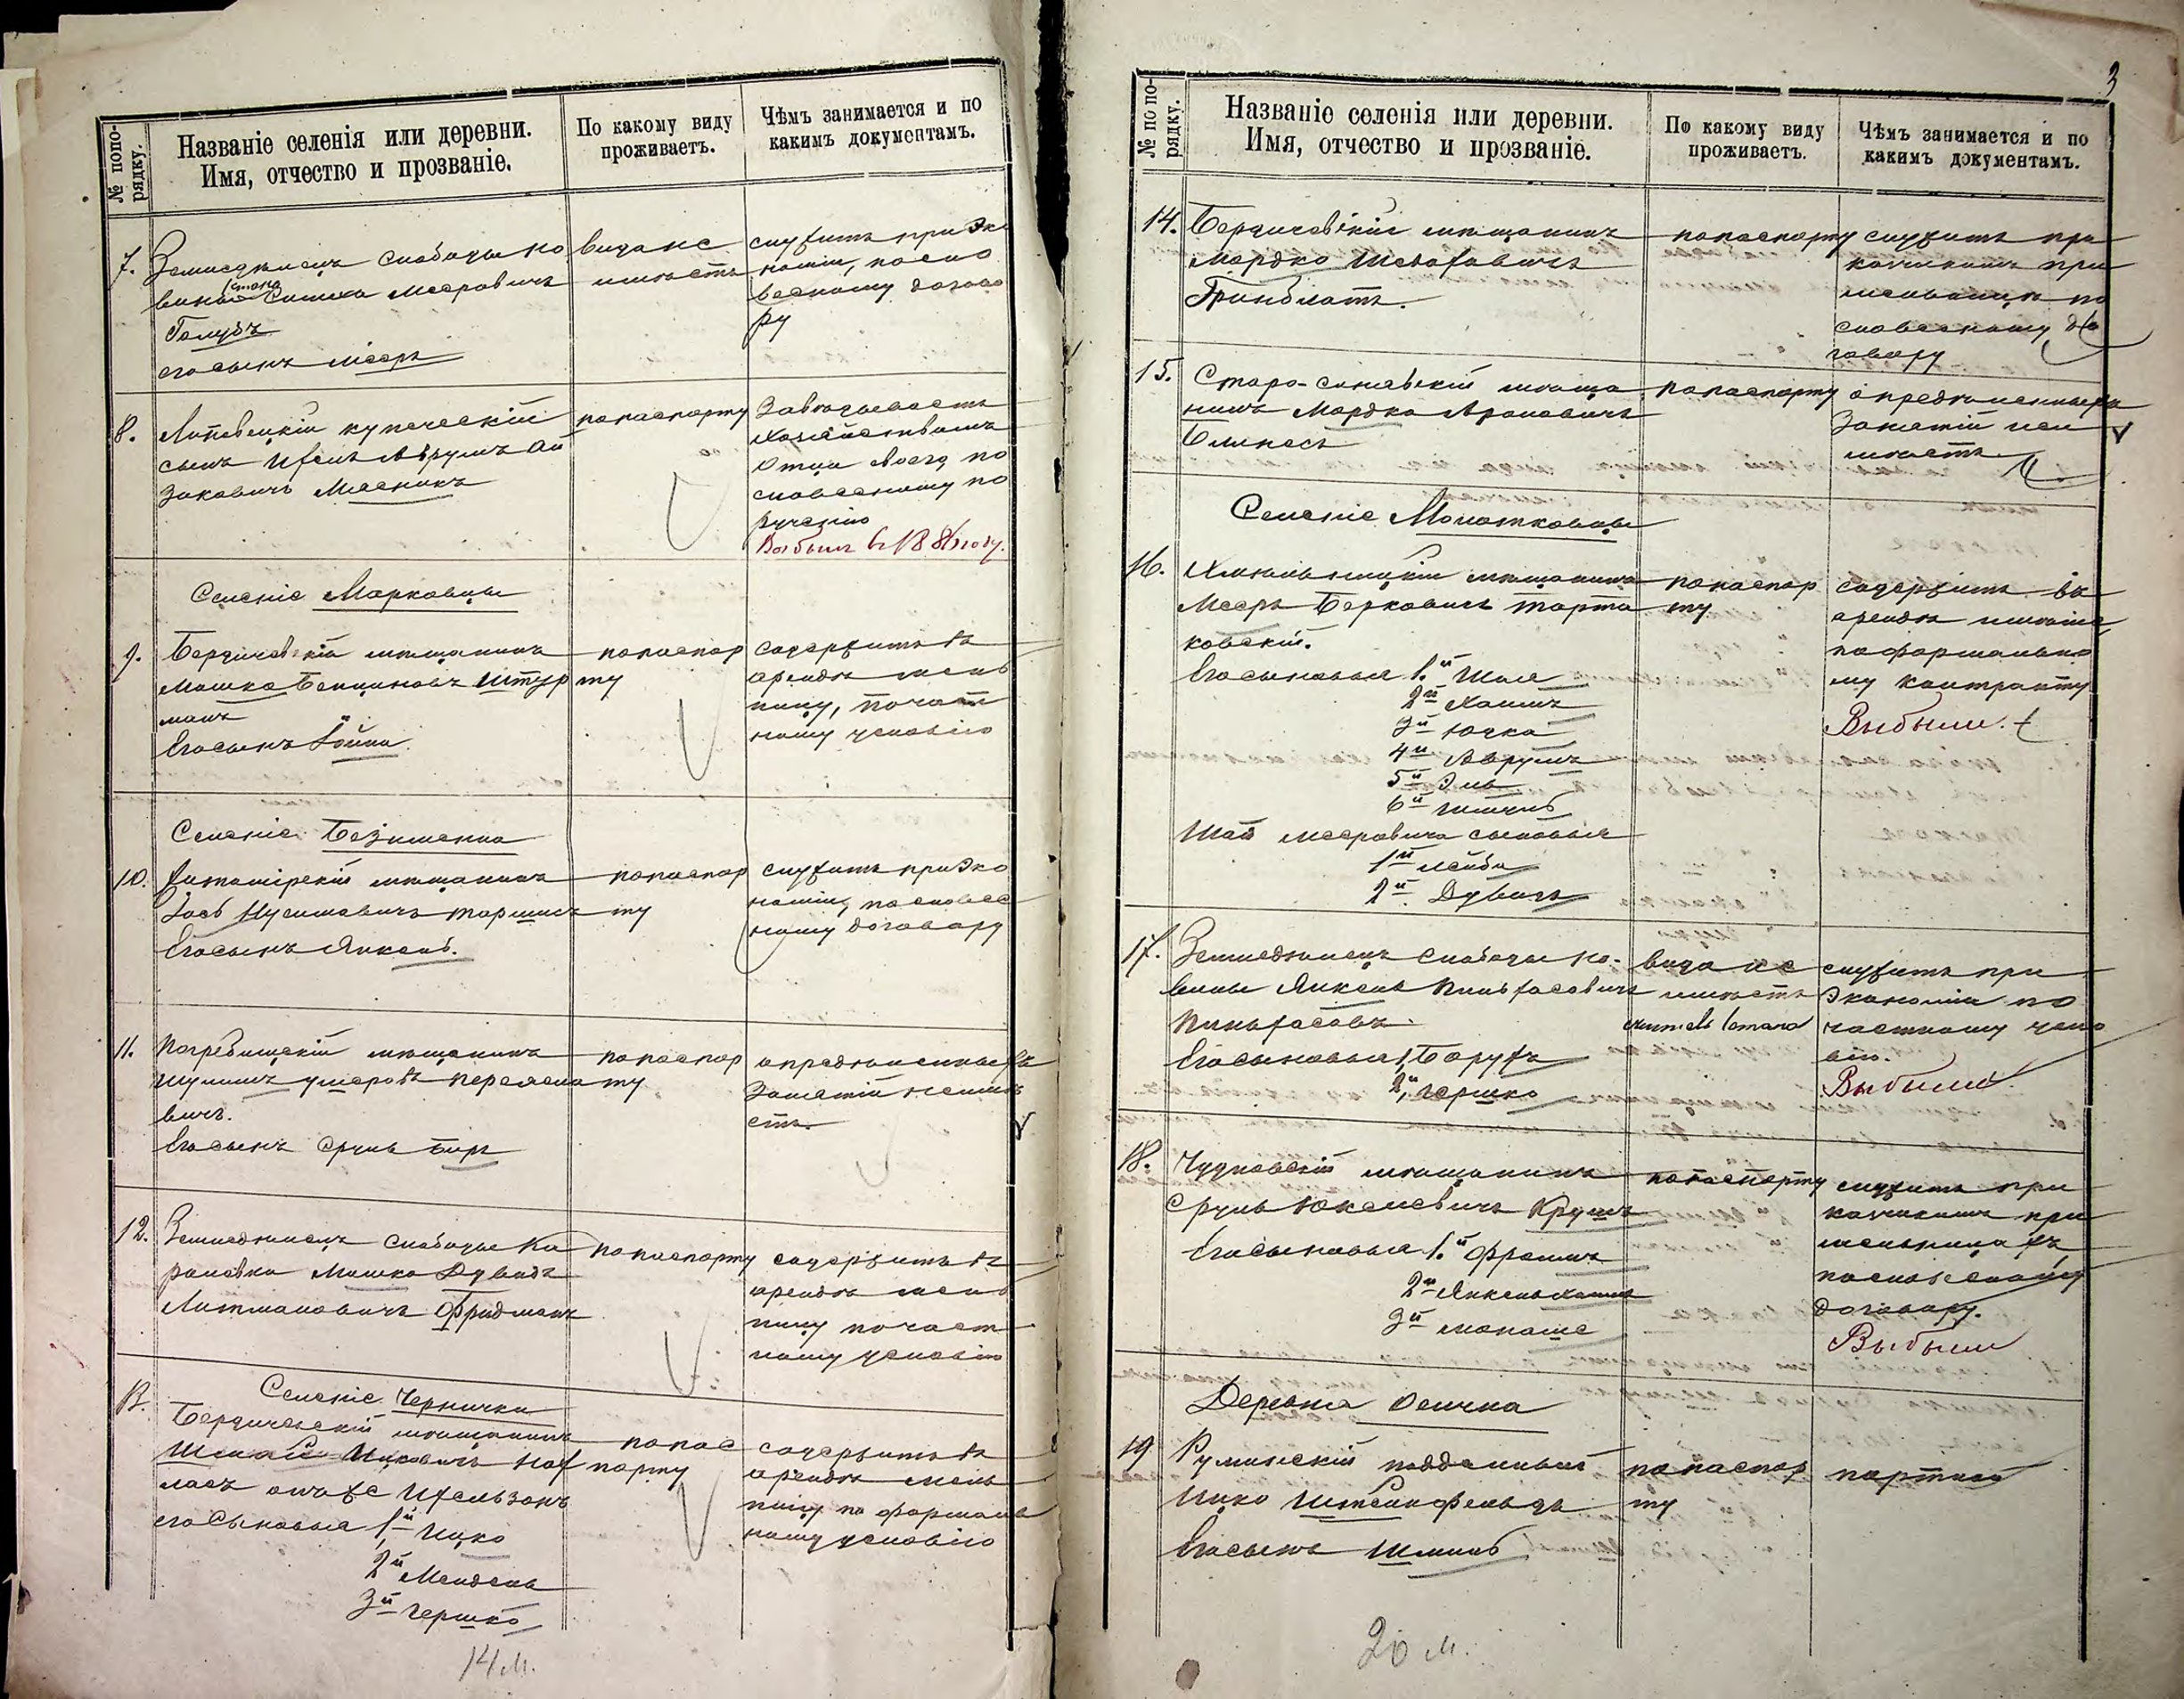 № попо-
рядку.
Названіе селенія или деревни.
Имя, отчество и прозваніе.
По какому виду
проживаетъ.
Чѣмъ занимается и по
какимъ документамъ.
7. Земледѣлецъ слободы Но
вики Симха Меровичъ
Голубъ
его сынъ Мееръ
вида не
имѣетъ
служитъ при Эко
номіи, по сло
весному догово
ру
8. Литовецкій купеческій
сынъ Ицель Аврумъ Ай
зиковичъ Мясникъ
по паспорту
Завѣдываетъ
хозяйствомъ
отца своего по
словесному по
рученію
Выбылъ въ 1886 году.
Селеніе Марковцы
9. Бердичевскій мѣщанинъ
Мошко Бенціновъ Штур
манъ
Его сынъ Іойна
по паспор
ту
содержитъ въ
арендѣ мель
ницу, по част
ному условію
Селеніе Безименна
10. Житомірскій мѣщанинъ
Іось Нусимовичъ
Его сынъ Янкель.
по паспор
ту
служитъ при Эко
номіи, по словес
ному договору
11. Погребищскій мѣщанинъ
Шулимъ Ушеровъ
вичъ.
Его сынъ Сруль Беръ
по паспор
ту
опредѣленныхъ
Занятій не имѣ
етъ.
12. Земледѣлецъ слободы Ка
ровка Мошко Дувидъ
Литмановичъ Фридманъ
по паспорту
содержитъ въ
арендѣ мель
ницу по част
ному условію
Селеніе Чернички
13. Бердичевскій мѣщанинъ
Ицковичъ
онъ же
его сыновья 1й Ицко
2й Мендель
3й Гершко
по пас
порту
содержитъ въ
арендѣ мель
ницу по формаль
ному условію
14 м.
3
№ по по-
рядку.
Названіе селенія или деревни.
Имя, отчество и прозваніе.
По какому виду
проживаетъ.
Чѣмъ занимается и по
какимъ документамъ.
14. Бердичевскій мѣщанинъ
Мордко Иосифовичъ
Гринблатъ.
по паспорту
служитъ при
кащикомъ при
мельницѣ по
словесному до
говору
15. Старо-синявскій мѣща
нинъ Мордко Ароновичъ
по паспорту
опредѣленныхъ
Занятій неи
мѣетъ.
Селеніе Молотковцы
16. Хмѣльницкій мѣщанинъ
Мееръ Берковичъ Тарта
ковскій.
Его сыновья 1й Шая
2й Хаимъ
3й Юкка
4й Аврумъ
5й Эль
6й
Шаи Мееровича сыновья
1й Лейба
2й Дувидъ
по паспор
ту
содержитъ въ
арендѣ имѣніе
по формально
му контракту
Выбыли.
17. Земледѣлецъ слободы Но-
вики Янкель Пинхасовичъ
Пинхасовъ.
Его сыновья 1, Борухъ
2й, Гершко
вида не
имѣетъ
служитъ при
Экономіи по
частному усло
вію.
Выбыли
18. Чудновскій мѣщанинъ
Сруль Юкелевичъ Крумъ
Его сыновья 1й Фроимъ
2й Янкель Хаимъ
3й Монаше
по паспорту
служитъ при
кащикомъ при
мельницахъ
по словесному
договору.
Выбыли
Деревня Осична
19 Румынскій подданный
Ицко Штейнфельдъ
Его сынъ Шлиомъ
по паспор
ту
портной
20 м.